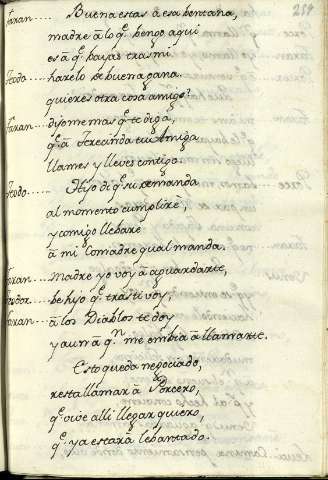 259
Faxan... Buena estas à esa bentana,
madre à lo q.e bengo aqui
es à q.e bajas tras mi
Teodo... harelo de buena gana
quieres otra cosa amigo?
Faxan... dijome mas q.e te diga,
q.e à Terecinda tu Amiga
llames y lleves contigo.
Teodo... Hijo di q.e su demanda
al momento cumplire
y comigo llebare
à mi Comadre qual manda.
Faxan... Madre yo voy à aguardarte,
Teodor. be hijo q.e tras ti voy,
Faxan... à los Diablos te doy
y aun à q.n me embia à llamarte.
Esto queda negociado,
resta llamar à Porcero,
q.e vive alli llegar quiero,
q.e ya estarà lebantado.